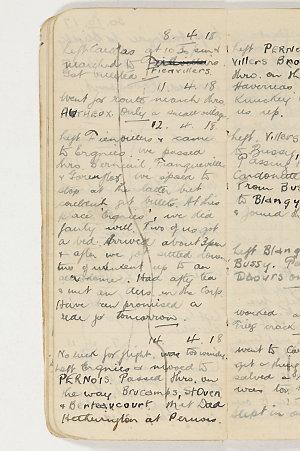 8. 4. 18
Left Candas at 10 I
marched to
Got billeted Fieavillers.
11 4. 18
Went for route march thro
AUTHEUX. Only a small village
12. 4. 18
Left Fienvillers & came
to Ergnies, we passed
thro Berneuil, Franqueville
& we expected to
stop at the latter but
couldnt get billets. At this
place 'Ergnies', we did
fairly well. Two of us got
a bed. Arrived about 3pm
& after we got settled down
two of us went up to an
aerodrome. Had after tea
& met an in the Corp.
Have been promised a
ride for tomorrow.
14 4. 18
No luck for flight, was too windy.
Left Ergnies & moved to
PERNOIS. Passed thro, on
the way, Brucamps, St Ouen
& Berteaucourt. Met Dad
Hetherington at Pernois.
left PERNO
Villers Bro
thro. on th
Havernas
us up.
left, Villers
to Bussy,
Passing
Cardonette
From Bus
to Blangy
& joined th
left Blang
Bussy. P
Daours on
worked a
Fritz crack
went to Co
got a thing
salved a
was too
slept in ou